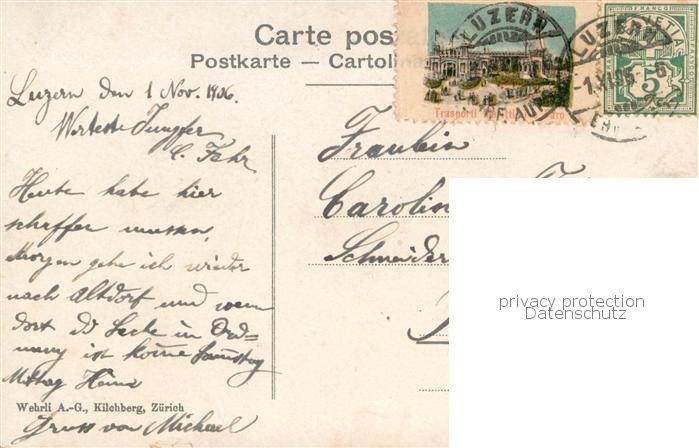 Carte pos
Postkarte — Cartolina
LUZERN
LUZERN
FRANCO
5
Trasporti
Luzern den 1 Nov. 1906.
Werteste Jungfer
C. Fahr
Heute habe hier
schaffen müssen,
Morgen gehe ich wieder
nach Altdorf und wenn
dort die Sache in Ord=
nung ist komme Samstag
Mittag Heim
Wehrli A.-G., Kilchberg, Zürich
Gruss von Michael
Fraulein
Carolin
Schneider
privacy protection
Datenschutz